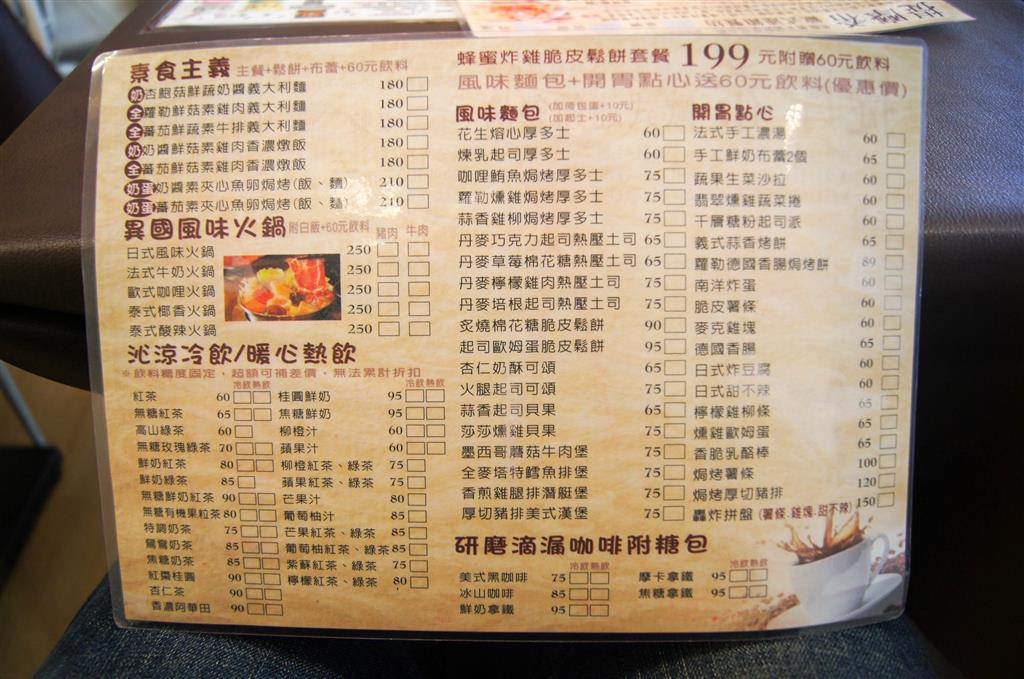 素食主義 主餐+鬆餅+布蕾+60元飲料
奶 杏鮑菇鮮蔬奶醬義大利麵 180
全 蘿勒鮮菇素雞肉義大利麵 180
全 蕃茄鮮蔬素牛排義大利麵 180
奶 奶醬鮮菇素雞肉香濃燉飯 180
全 蕃茄鮮菇素雞肉香濃燉飯 180
奶蛋 奶醬素夾心魚卵焗烤(飯、麵) 210
奶蛋 蕃茄素夾心魚卵焗烤(飯、麵) 210
異國風味火鍋 附白飯+60元飲料 豬肉 牛肉
日式風味火鍋 250
法式牛奶火鍋 250
歐式咖哩火鍋 250
泰式椰香火鍋 250
泰式酸辣火鍋 250
沁涼冷飲/暖心熱飲
※飲料糖度固定，超額可補差價，無法累計折扣
冷飲 熱飲
紅茶 60
無糖紅茶 65
高山綠茶 60
無糖玫瑰綠茶 70
鮮奶紅茶 80
鮮奶綠茶 85
無糖鮮奶紅茶 90
無糖有機果粒茶 80
特調奶茶 75
鴛鴦奶茶 85
焦糖奶茶 85
紅棗桂圓 90
杏仁茶 90
香濃阿華田 90
冷飲 熱飲
桂圓鮮奶 95
焦糖鮮奶 95
柳橙汁 60
蘋果汁 60
柳橙紅茶、綠茶 75
蘋果紅茶、綠茶 75
芒果汁 80
葡萄柚汁 85
芒果紅茶、綠茶 85
葡萄柚紅茶、綠茶 85
紫蘇紅茶、綠茶 75
檸檬紅茶、綠茶 80
蜂蜜炸雞脆皮鬆餅套餐 199 元附贈60元飲料
風味麵包+開胃點心送60元飲料(優惠價)
風味麵包 (加荷包蛋+10元)
(加起士+10元)
花生熔心厚多士 60
煉乳起司厚多士 60
咖哩鮪魚焗烤厚多士 75
蘿勒燻雞焗烤厚多士 75
蒜香雞柳焗烤厚多士 75
丹麥巧克力起司熱壓土司 65
丹麥草莓棉花糖熱壓土司 65
丹麥檸檬雞肉熱壓土司 75
丹麥培根起司熱壓土司 75
炙燒棉花糖脆皮鬆餅 90
起司歐姆蛋脆皮鬆餅 95
杏仁奶酥可頌 65
火腿起司可頌 75
蒜香起司貝果 65
莎莎燻雞貝果 75
墨西哥蘑菇牛肉堡 75
全麥塔特鱈魚排堡 75
香煎雞腿排潛艇堡 75
厚切豬排美式漢堡 75
開胃點心
法式手工濃湯 60
手工鮮奶布蕾2個 65
蔬果生菜沙拉 60
翡翠燻雞蔬菜捲 60
千層糖粉起司派 60
義式蒜香烤餅 65
蘿勒德國香腸焗烤餅 89
南洋炸蛋 60
脆皮薯條 60
麥克雞塊 60
德國香腸 65
日式炸豆腐 60
日式甜不辣 60
檸檬雞柳條 65
燻雞歐姆蛋 65
香脆乳酪棒 65
焗烤薯條 100
焗烤厚切豬排 120
轟炸拼盤(薯條、雞塊、甜不辣) 150
研磨滴漏咖啡附糖包
冷飲 熱飲 冷飲 熱飲
美式黑咖啡 75 摩卡拿鐵 95
冰山咖啡 85 焦糖拿鐵 95
鮮奶拿鐵 95